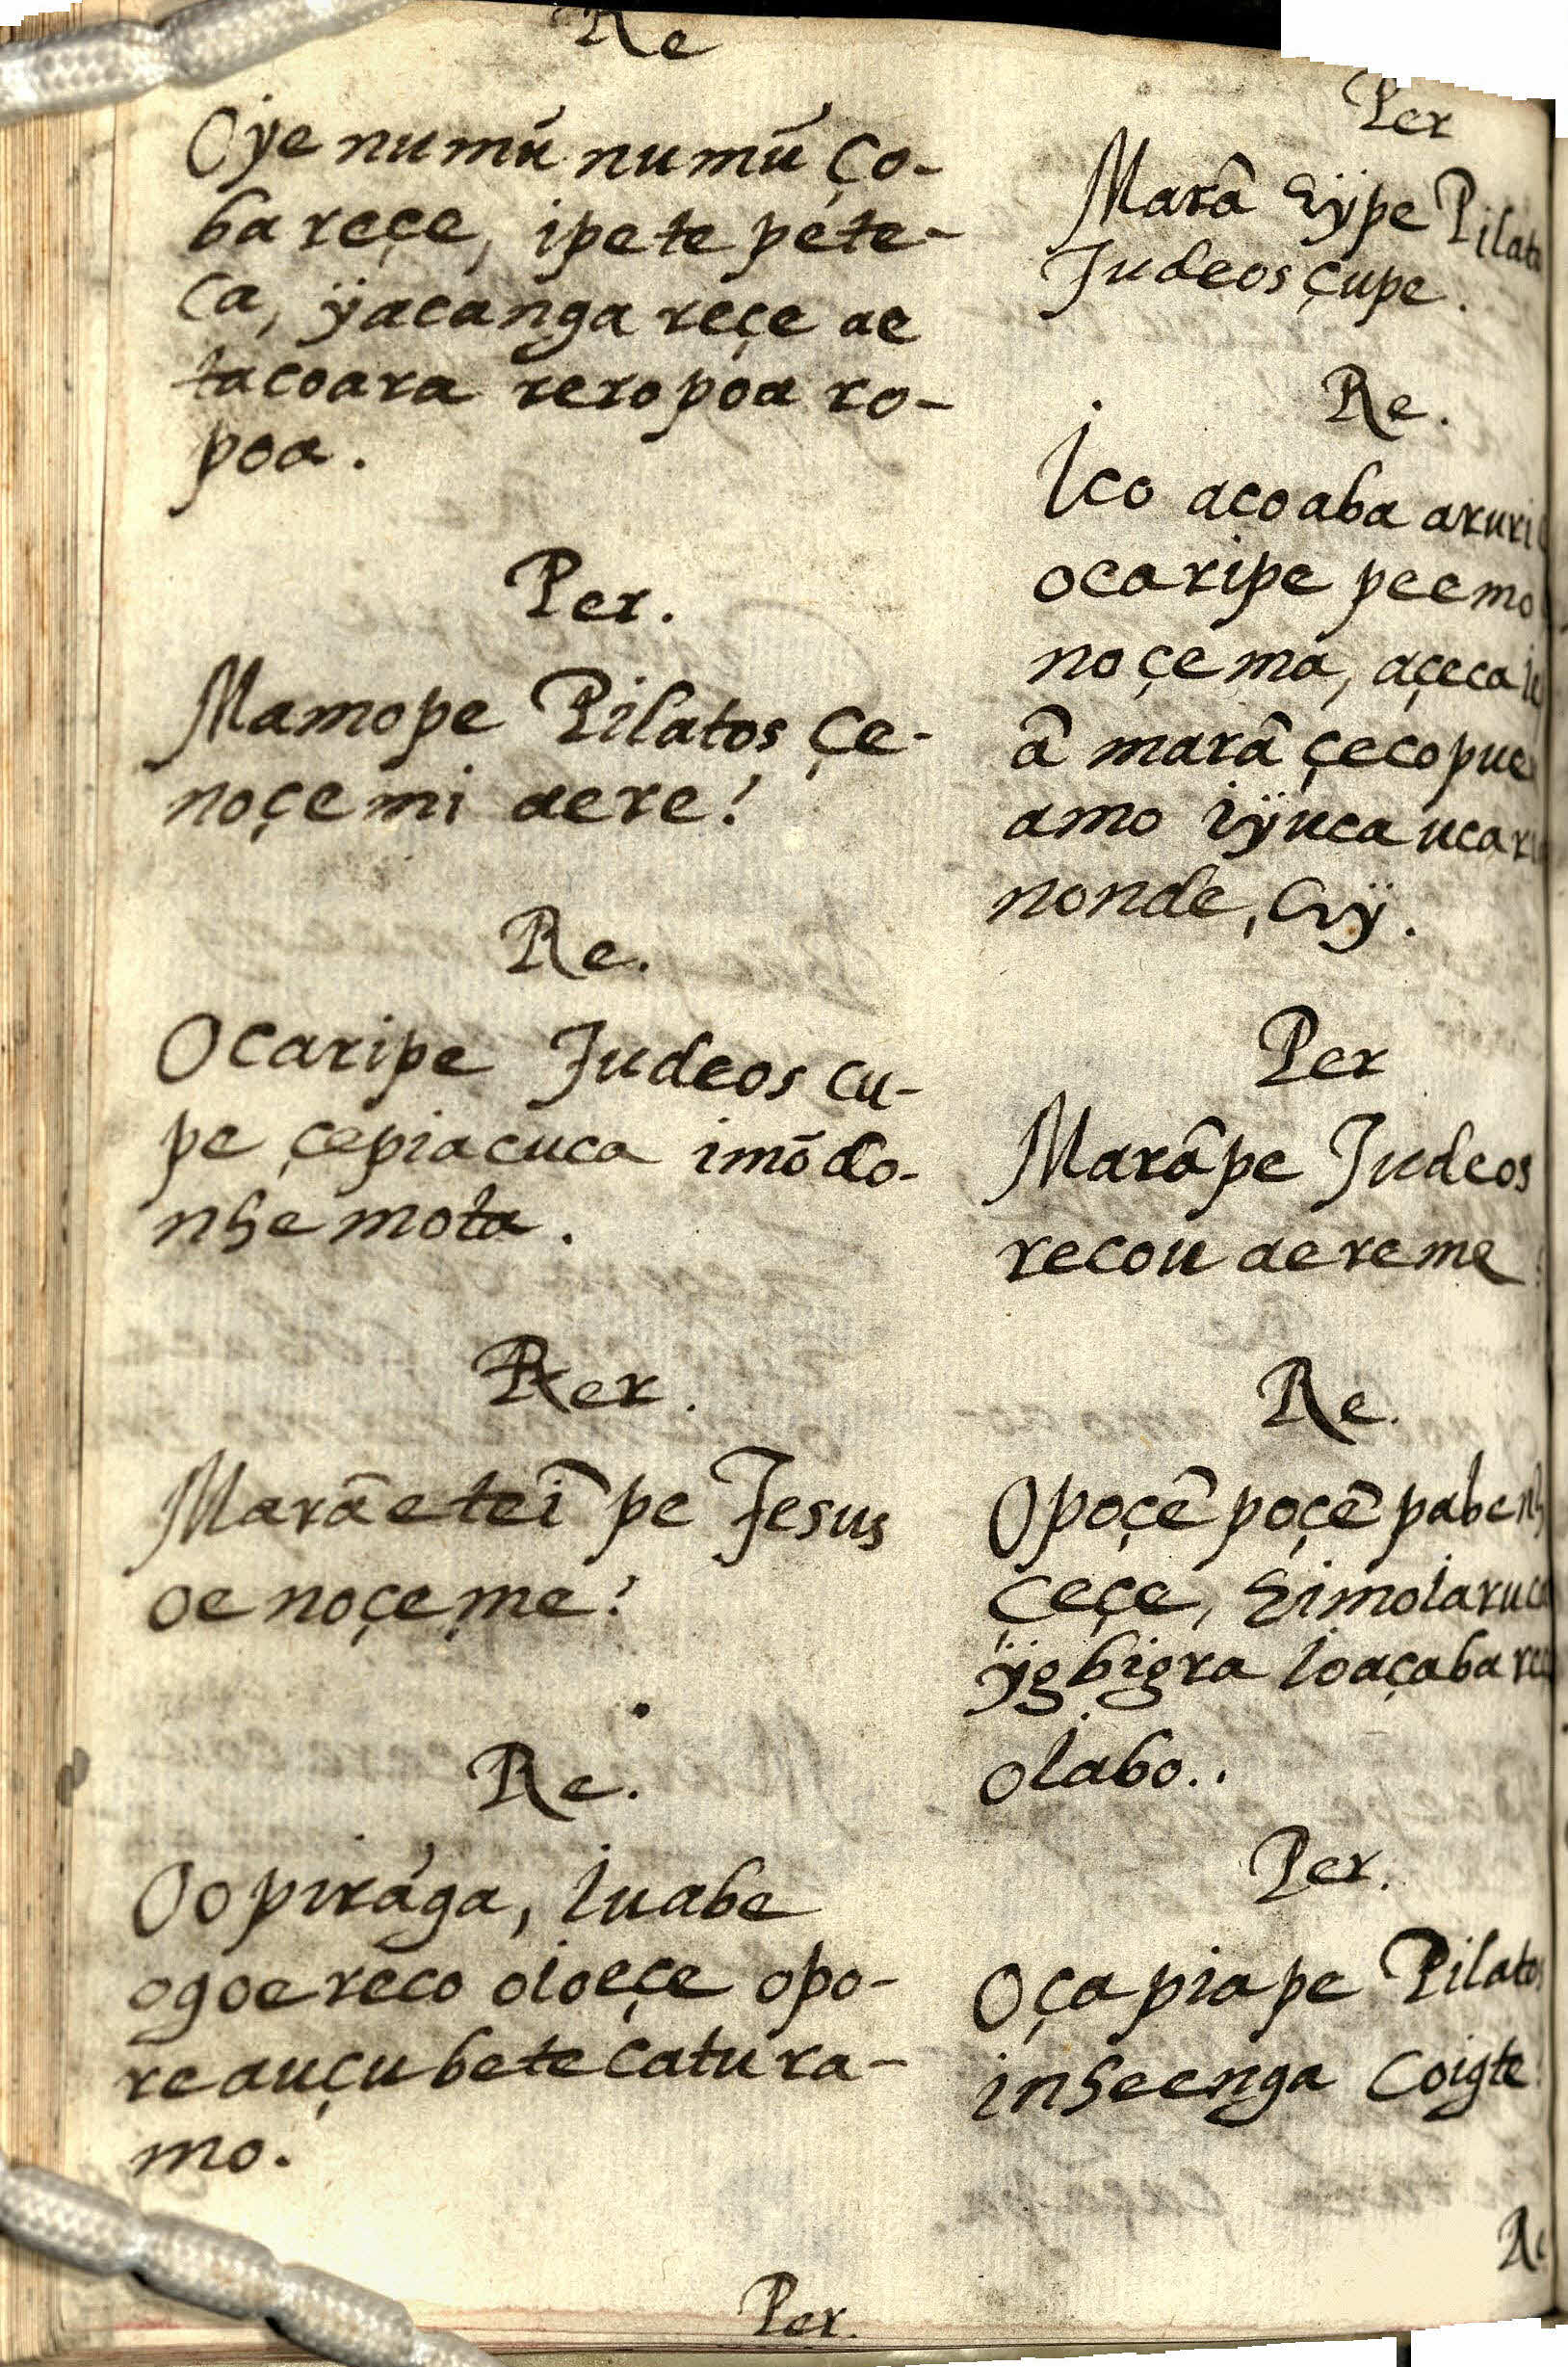 Re
Oÿe numũ numũ ço-
ba reçe, ipete péte-
ca, ÿacanga reçe ae
tacoara reropoa ro-
poa.
Per.
Mamope Pilatos çe-
noçemi aere?
Re.
Ocaripe Judeos cu-
pe çepiacuca imõdo-
nhe mota.
Per.
Marãeteĩ pe Jesus
oe noçeme?
Re.
Oo pirága, iuabe
ogoereco oioeçe opo-
reauçubetecatura-
mo.
Per.
Per
Marâ eÿpe
Judeos çupe.
Re.
Ico acoaba
ocaripe peemo
noçema,
â marâ
amo iÿuca
nonde, eÿ.
Per
Marâpe Judeos
recou aereme
Re.
Opoçẽ poçẽ
çeçe,
ÿgbigra ioaçaba
oiabo..
Per.
Oçapiape Pilatos
inheenga Coigte